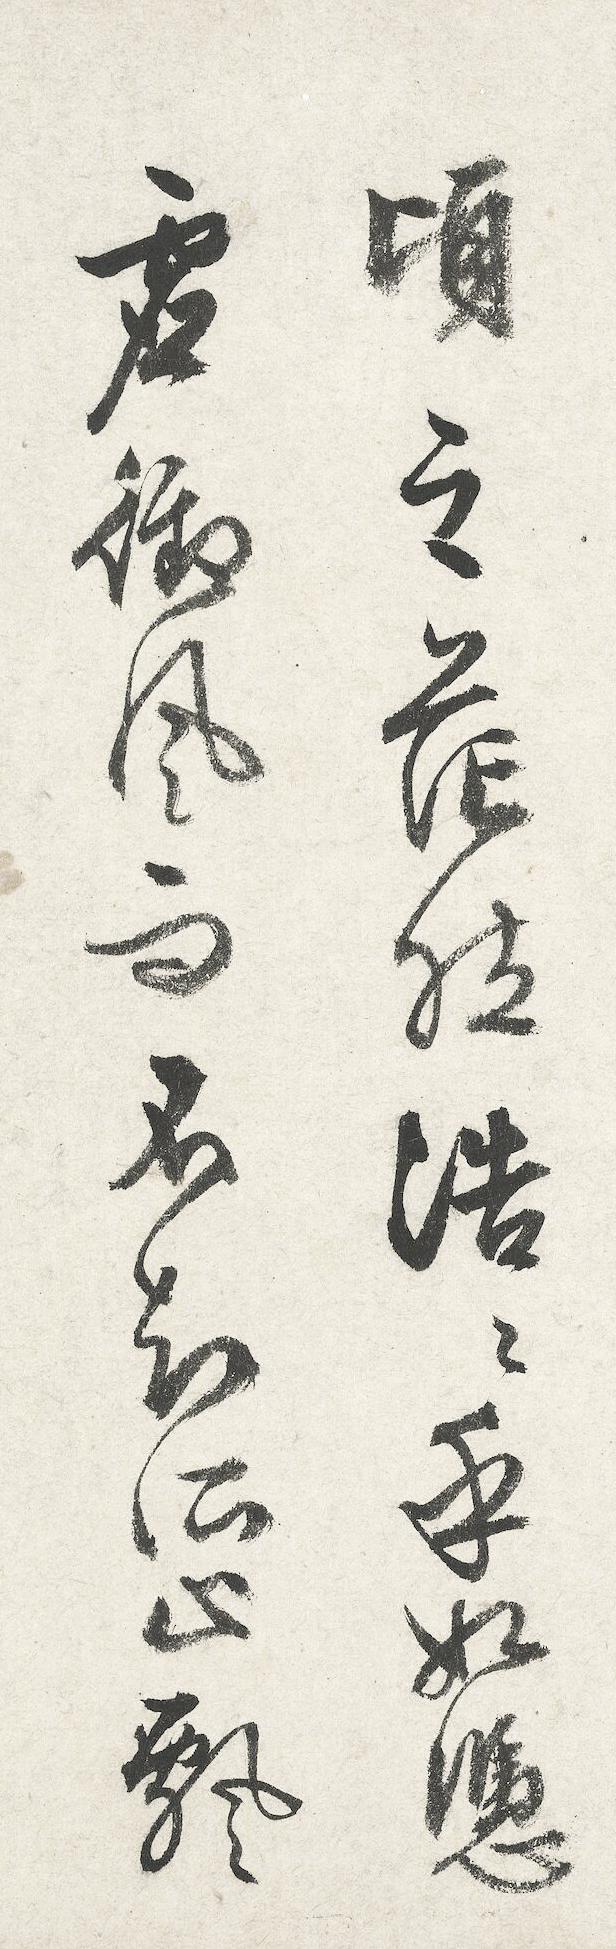 頃之茫然浩〻乎如憑
虛御風而不知所止飄